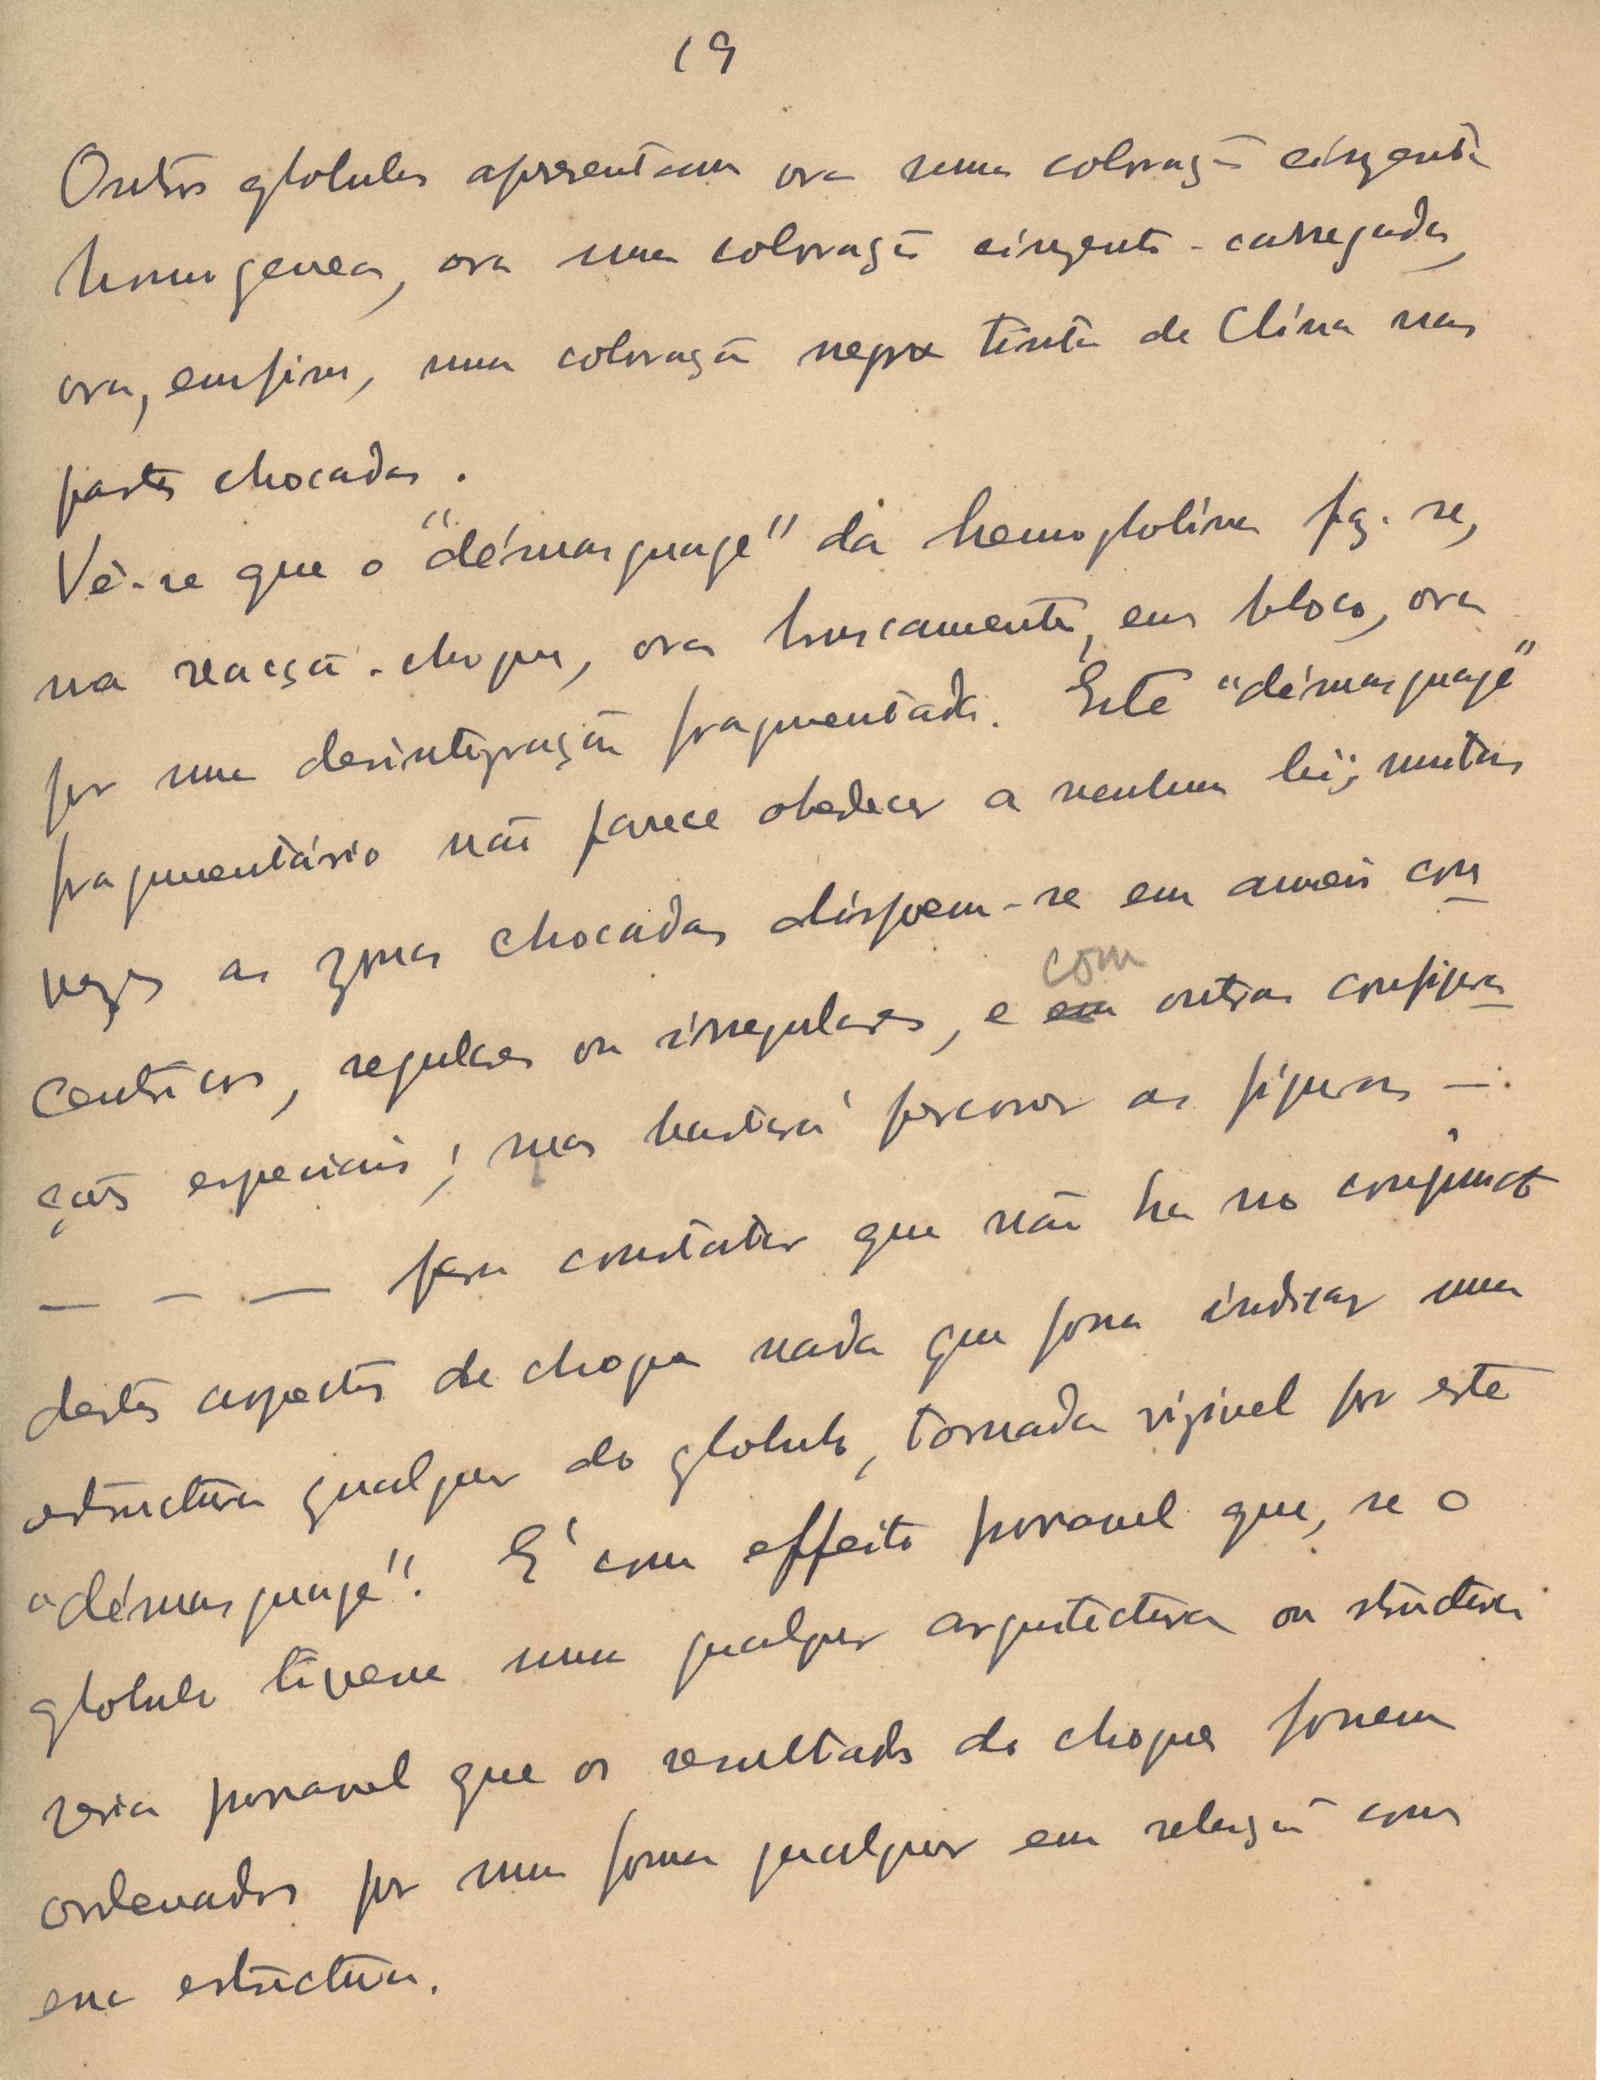 19
Outros globulos apresentam ora uma coloração cinzenta
homogenea, ora uma coloração cinzento-carregada,
ora, emfim, uma coloração negra tinta da China nas
partes chocadas.
Vê-se que o "démasquage" da hemoglobina faz-se,
na reacção-choque, ora bruscamente, em bloco, ora
por uma desintegração fragmentada. Este "démasquage"
fragmentário não parece obedecer a nenhuma lei; muitas
vezes as zonas chocadas dispoem-se em anneis con
centricos, regulares ou irregulares, e com outras configura
ções especiais; mas bastará percorrer as figuras —
— — — para constatar que não ha no conjuncto
destes aspectos de choque nada que possa indicar uma
estructura qualquer do globulo, tornada visivel por este
"démasquage". É com effeito provavel que, se o
globulo tivesse uma qualquer arquitectura ou structura
seria provavel que os resultados do choque fossem
ordenados por uma forma qualquer em relação com
essa estructura.